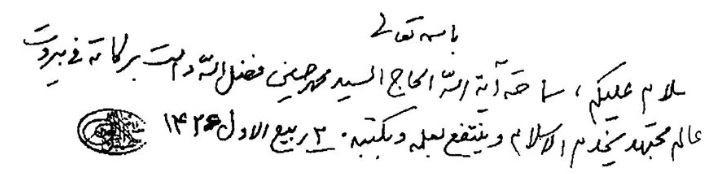 باسمه تعالى
سلام عليكم، سماحة آية الله الحاج السيد محمد حسين فضل الله دامت بركاته في بيروت
عالم مجتهد يخدم الاسلام و ينتفع بعلمه و بكتبه. ٣ ربيع الاول ۱۴۲۶